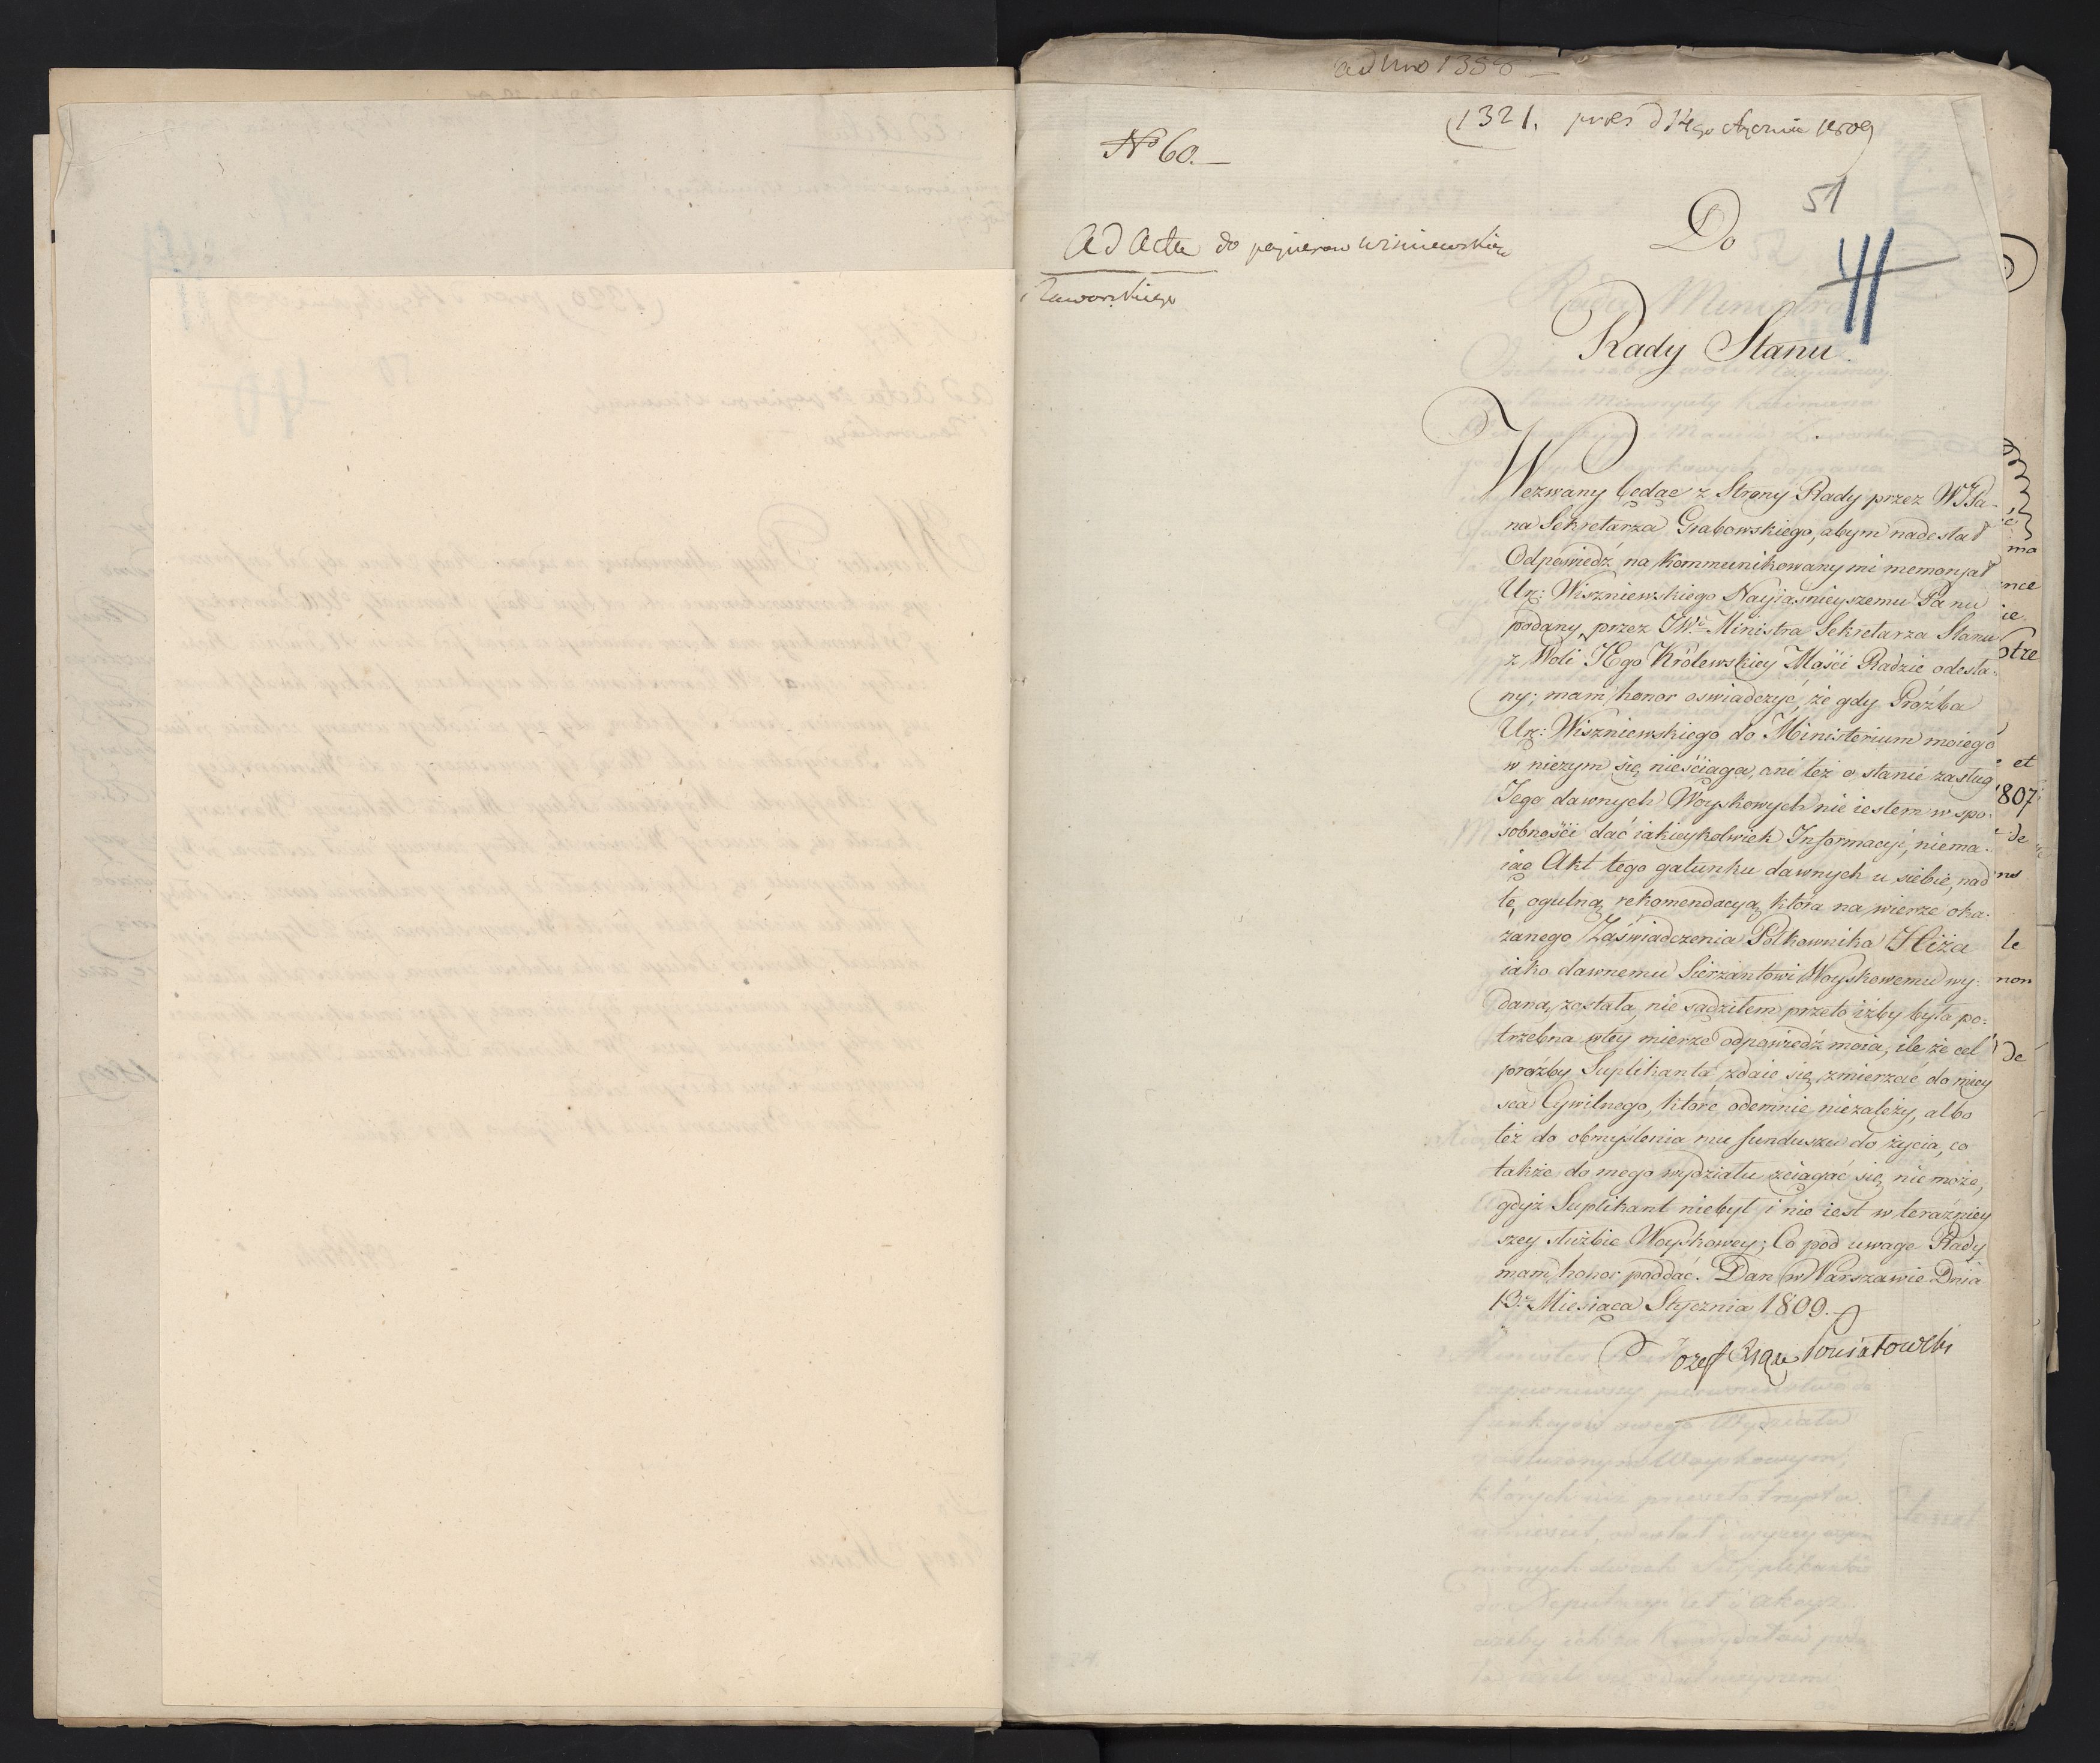 ad Nro 1358
1321. pres d 14go stycznia 1809
No 60.
51
41
Ad Acta do papierow Wisniewskiego
i Zaworskiego
Do
Rady Stanu.
Wezwany będąc z Strony Rady przez WJPa-
na Sekretarza Grabowskiego, abym nadesłał
Odpowiedź na kommunikowany mi memoryał
Ur: Wiszniewskiego Nayiaśnieyszemu Panu
podany, przez JWo Ministra Sekretarza Stanu
z Woli JEgo Królewskiey Mości Radzie odesła-
ny; mam honor oswiadczyć, że gdy Proźba
Ur: Wiszniewskiego do Ministerium moiego
w niczym się nieściąga, ani też o stanie zasług
Jego dawnych Woyskowych nie iestem w spo-
sobności dać iakieykolwiek Informacyi, niema-
iąc Akt tego gatunku dawnych u siebie, nad
tę ogulną rekomendacyą która na wierze oka-
zanego Zaświadczenia Półkownika Hiża
iako dawnemu Sierżantowi Woyskowemu wy-
daną została, nie sądziłem przeto iżby była po-
trzebna w tey mierze odpowiedź moia, ile że cel
proźby Suplikanta zdaie się zmierzać do miey
sca Cywilnego, które odemnie niezależy, albo
też do obmyślenia mu funduszu do życia, co
także do mego wydziału ściągać się nie może,
gdyż Suplikant niebył i nie iest w teraźniey
szey służbie Woyskowey; Co pod uwagę Rady
mam honor poddać. Dan w Warszawie Dnia
13. Miesiąca Stycznia 1809.
Jozef Xiąże Poniatowski